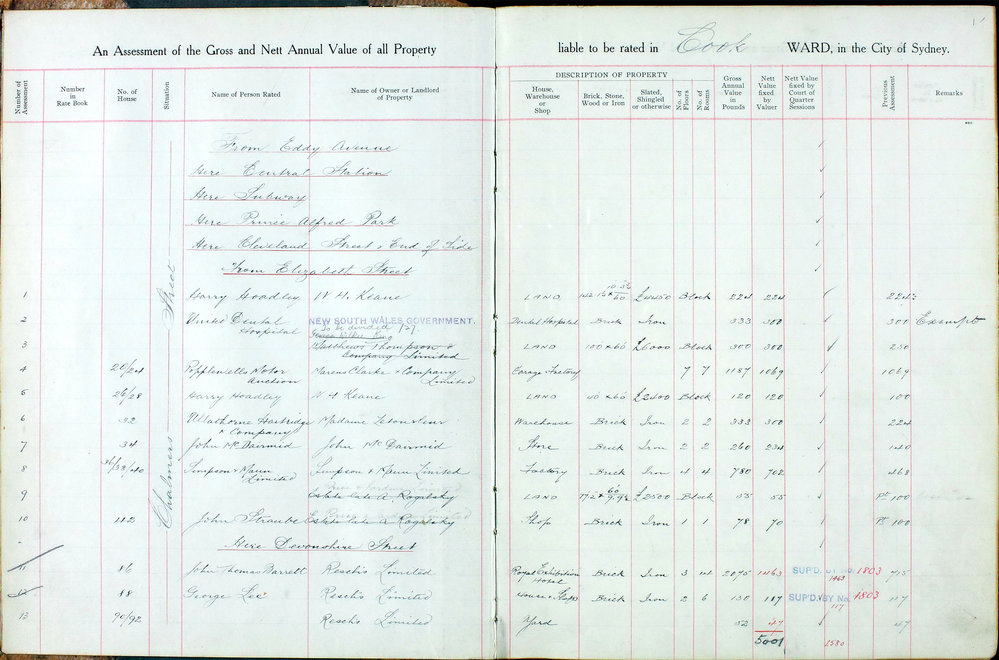 An Assessment of the Gross and Nett Annual Value of all Property liable to be rated in Cook WARD, in the City of Sydney.
DESCRIPTION OF PROPERTY
Number of Assessment | Number in Rate Book | No. of House | Situation | Name of Person Rated | Name of Owner or Landlord of Property | House, Warehouse or Shop | Brick, Stone, Wood or Iron | Slated, Shingled or otherwise | No. of Floors | No. of Rooms | Gross Annual Value in Pounds | Nett Value fixed by Valuer | Nett Value fixed by Court of Quarter Sessions | Previous Assessment | Remarks
Chalmers Street
From Eddy Avenue
Here Central Station
Here Subway
Here Prince Alfred Park
Here Cleveland Street & End of Side
From Elizabeth Street
1 Harry Hoadley W. H. Keane LAND £4450 Block 224 224 224
2 United Dental Hospital NEW SOUTH WALES GOVERNMENT. Dental Hospital Brick Iron 333 300 300 Exempt
To be divided /27.
3 Matthews Thompson & Company Limited LAND 100 x 60 £6000 Block 300 300 250
4 20/24 Popplewells Motor Auction Marcus Clarke & Company Limited Garage Factory 7 7 1187 1069 1069
5 26/28 Harry Hoadley W H Keane LAND 40 x 60 £2400 Block 120 120 100
6 32 & Company Madame Warehouse Brick Iron 2 2 333 300 224
7 34 John McDairmid John McDairmid Store Brick Iron 2 2 260 234 140
8 36/38/40 Simpson & Mann Limited Simpson & Mann Limited Factory Brick Iron 4 4 780 702 468
9 Estate late A. Rogalsky LAND £2500 Block 55 55 Pt 100
10 42 John Straube Estate late A Rogalsky Shop Brick Iron 1 1 78 70 Pt 100
Here Devonshire Street
11 86 John Thomas Barrett Resch's Limited Royal Exhibition Hotel Brick Iron 3 2075 1463 SUP'D. BY No. 1803 715
1463
12 88 George Lee Resch's Limited House & Shop Brick Iron 2 6 130 117 SUP'D. BY No. 1803 117
117
13 90/92 Resch's Limited Yard 52 47 47
5001 1580